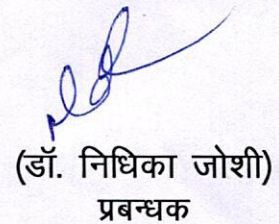 (डॉ. निधिका जोशी)
प्रबन्धक